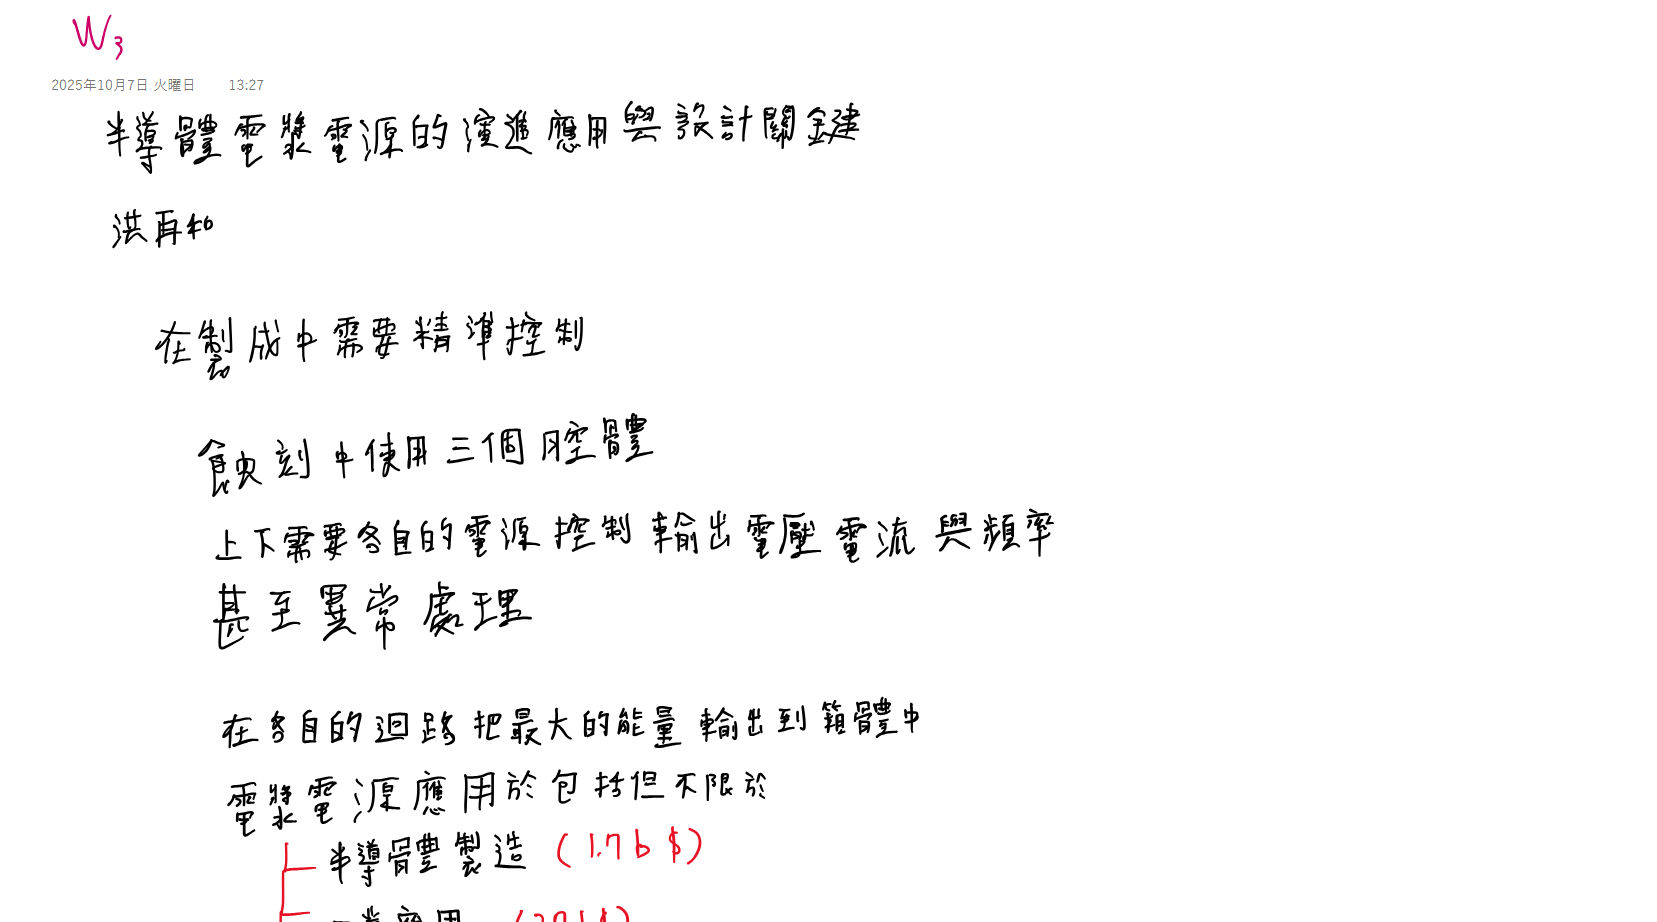 W3
2025年10月7日 火曜日 13:27
半導體電漿電源的演進應用與設計關鍵
洪再和
在製成中需要精準控制
蝕刻中使用三個腔體
上下需要各自的電源控制輸出電壓電流與頻率
甚至異常處理
在各自的迴路把最大的能量輸出到箱體中
電漿電源應用於包括但不限於
半導體製造 (1.7b$)